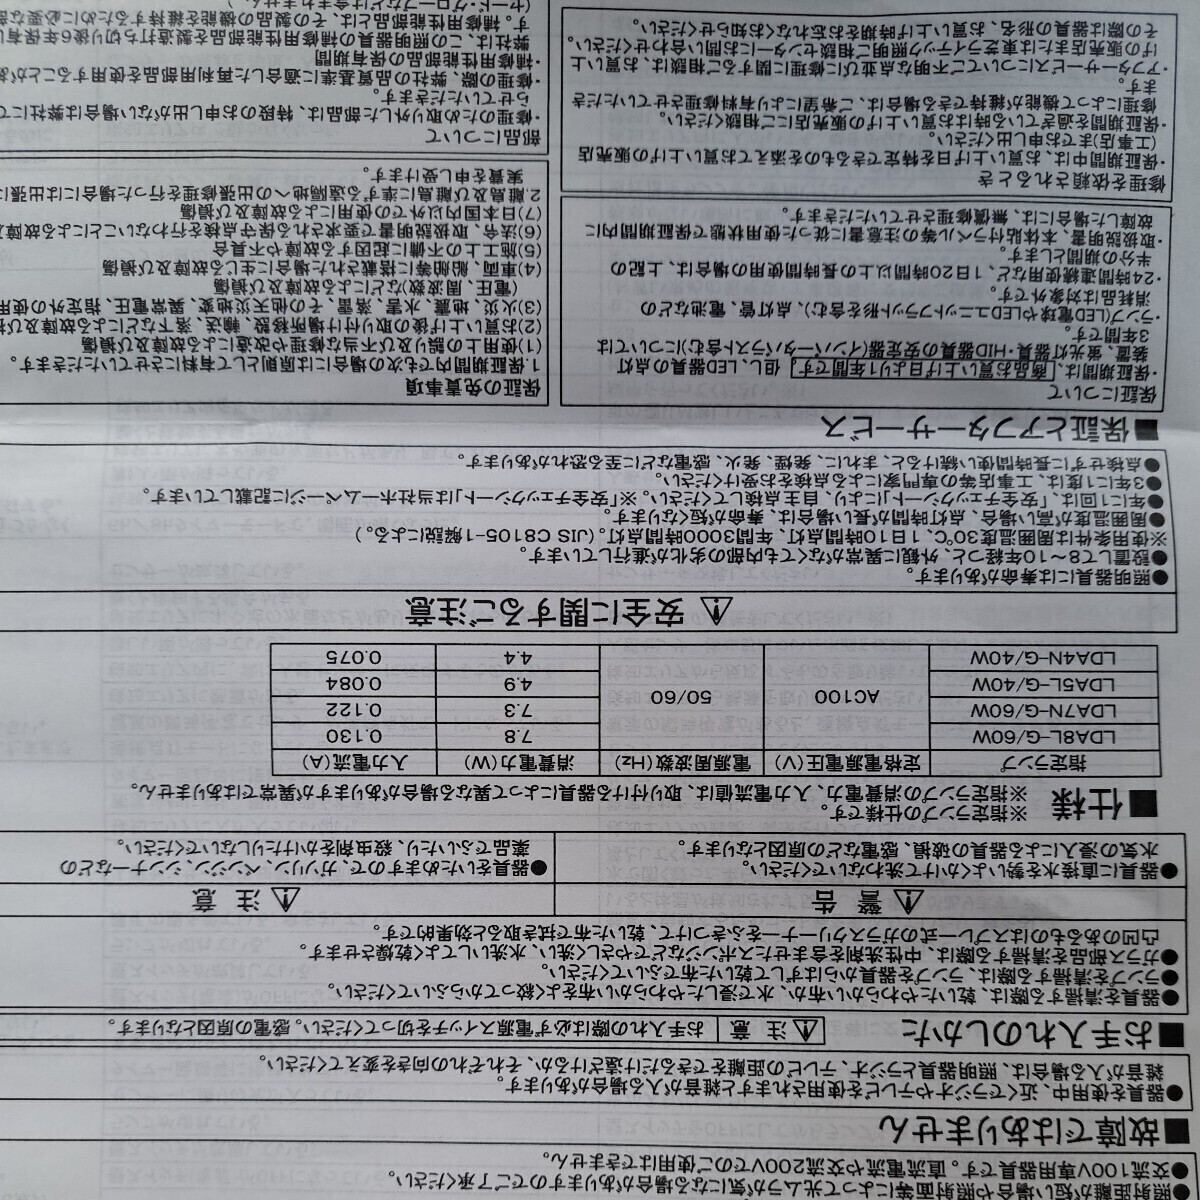 ●照射距離が短い場合や照射面等によって光ムラが気になる場合がありますのでご了承ください。
●交流100V専用器具です。直流電流や交流200Vでのご使用はできません。
■故障ではありません
●器具を使用中、近くでラジオやテレビを使用されますと雑音が入る場合があります。
雑音が入る場合は、照明器具とラジオ、テレビの距離をできるだけ遠ざけるか、それぞれの向きを変えてください。
■お手入れのしかた ⚠注 意 お手入れの際は必ず電源スイッチを切ってください。感電の原因となります。
●器具を清掃する際は、乾いたやわらかい布か、水で浸したやわらかい布をよく絞ってからふいてください。
●ランプを清掃する際は、ランプを器具からはずして乾いた布でふいてください。
●ガラス部品を清掃する際は、中性洗剤を含ませたスポンジなどでやさしく洗い、水洗いしてよく乾燥させます。
凸凹のあるものはスプレー式のガラスクリーナーをふきつけて、乾いた布で拭き取ると効果的です。
⚠警 告
●器具に直接水を勢いよくかけて洗わないでください。
水気の浸入による器具の破損、感電などの原因となります。
⚠注 意
●器具をいためますので、ガソリン、ベンジン、シンナーなどの
薬品でふいたり、殺虫剤をかけたりしないでください。
■仕様 ※指定ランプの仕様です。
※指定ランプの消費電力、入力電流値は、取り付ける器具によって異なる場合がありますが異常ではありません。
指定ランプ 定格電源電圧(V) 電源周波数(Hz) 消費電力(W) 入力電流(A)
LDA8L-G/60W AC100 50/60 7.8 0.130
LDA7N-G/60W 7.3 0.122
LDA5L-G/40W 4.9 0.084
LDA4N-G/40W 4.4 0.075
⚠安全に関するご注意
●照明器具には寿命があります。
●設置して8〜10年経つと、外観に異常がなくても内部の劣化が進行しています。
※使用条件は周囲温度30℃、1日10時間点灯、年間3000時間点灯。(JIS C8105-1解説による。)
●周囲温度が高い場合、点灯時間が長い場合は、寿命が短くなります。
●年に1回は、「安全チェックシート」により、自主点検してください。※「安全チェックシート」は当社ホームページに記載しています。
●3年に1度は、工事店等の専門家による点検をお受けください。
●点検せずに長時間使い続けると、まれに、発煙、発火、感電などに至る恐れがあります。
■保証とアフターサービス
保証について
・保証期間は、商品お買い上げ日より1年間です。但し、LED器具の点灯
装置、蛍光灯器具・HID器具の安定器(インバータバラスト含む)については
3年間です。
・ランプ(LED電球やLEDユニットフラット形を含む)、点灯管、電池などの
消耗品は対象外です。
・24時間連続使用など、1日20時間以上の長時間使用の場合は、上記の
半分の期間とします。
・取扱説明書、本体貼付ラベル等の注意書に従った使用状態で保証期間内に
故障した場合には、無償修理させていただきます。
修理を依頼されるとき
・保証期間中は、お買い上げ日を特定できるものを添えてお買い上げの販売店
(工事店)までお申し出ください。
・保証期間を過ぎている時はお買い上げの販売店にご相談ください。
修理によって機能が維持できる場合は、ご希望により有料修理させていただき
ます。
・アフターサービスについてご不明な点並びに修理に関するご相談は、お買い上
げの販売店または東芝ライテック照明ご相談センターにお問い合わせください。
その際は器具の形名、お買い上げ時期をお忘れなくお知らせください。
保証の免責事項
1.保証期間内でも次の場合には原則として有料にさせていただきます。
(1)使用上の誤り及び不当な修理や改造による故障及び損傷
(2)お買い上げ後の取り付け場所移設、輸送、落下などによる故障及び
(3)火災、地震、水害、落雷、その他天災地変、異常電圧、指定外の使用
(電圧、周波数などによる故障及び損傷
(4)車両、船舶等に搭載された場合に生じる故障及び損傷
(5)施工上の不備に起因する故障や不具合
(6)法令、取扱説明書で要求される保守点検を行わないことによる故障及
(7)日本国内以外での使用による故障及び損傷
2.離島及び離島に準ずる遠隔地への出張修理を行った場合には出張に
実費を申し受けます。
部品について
・修理のため取り外した部品は、特段のお申し出がない場合は弊社にて
らせていただきます。
・修理の際、弊社の品質基準に適合した再利用部品を使用することがあ
・補修用性能部品の保有期間
弊社は、この照明器具の補修用性能部品を製造打ち切り後6年保有し
す。補修用性能部品とは、その製品の機能を維持するために必要な部
(セード・グローブなどは含まれません。)